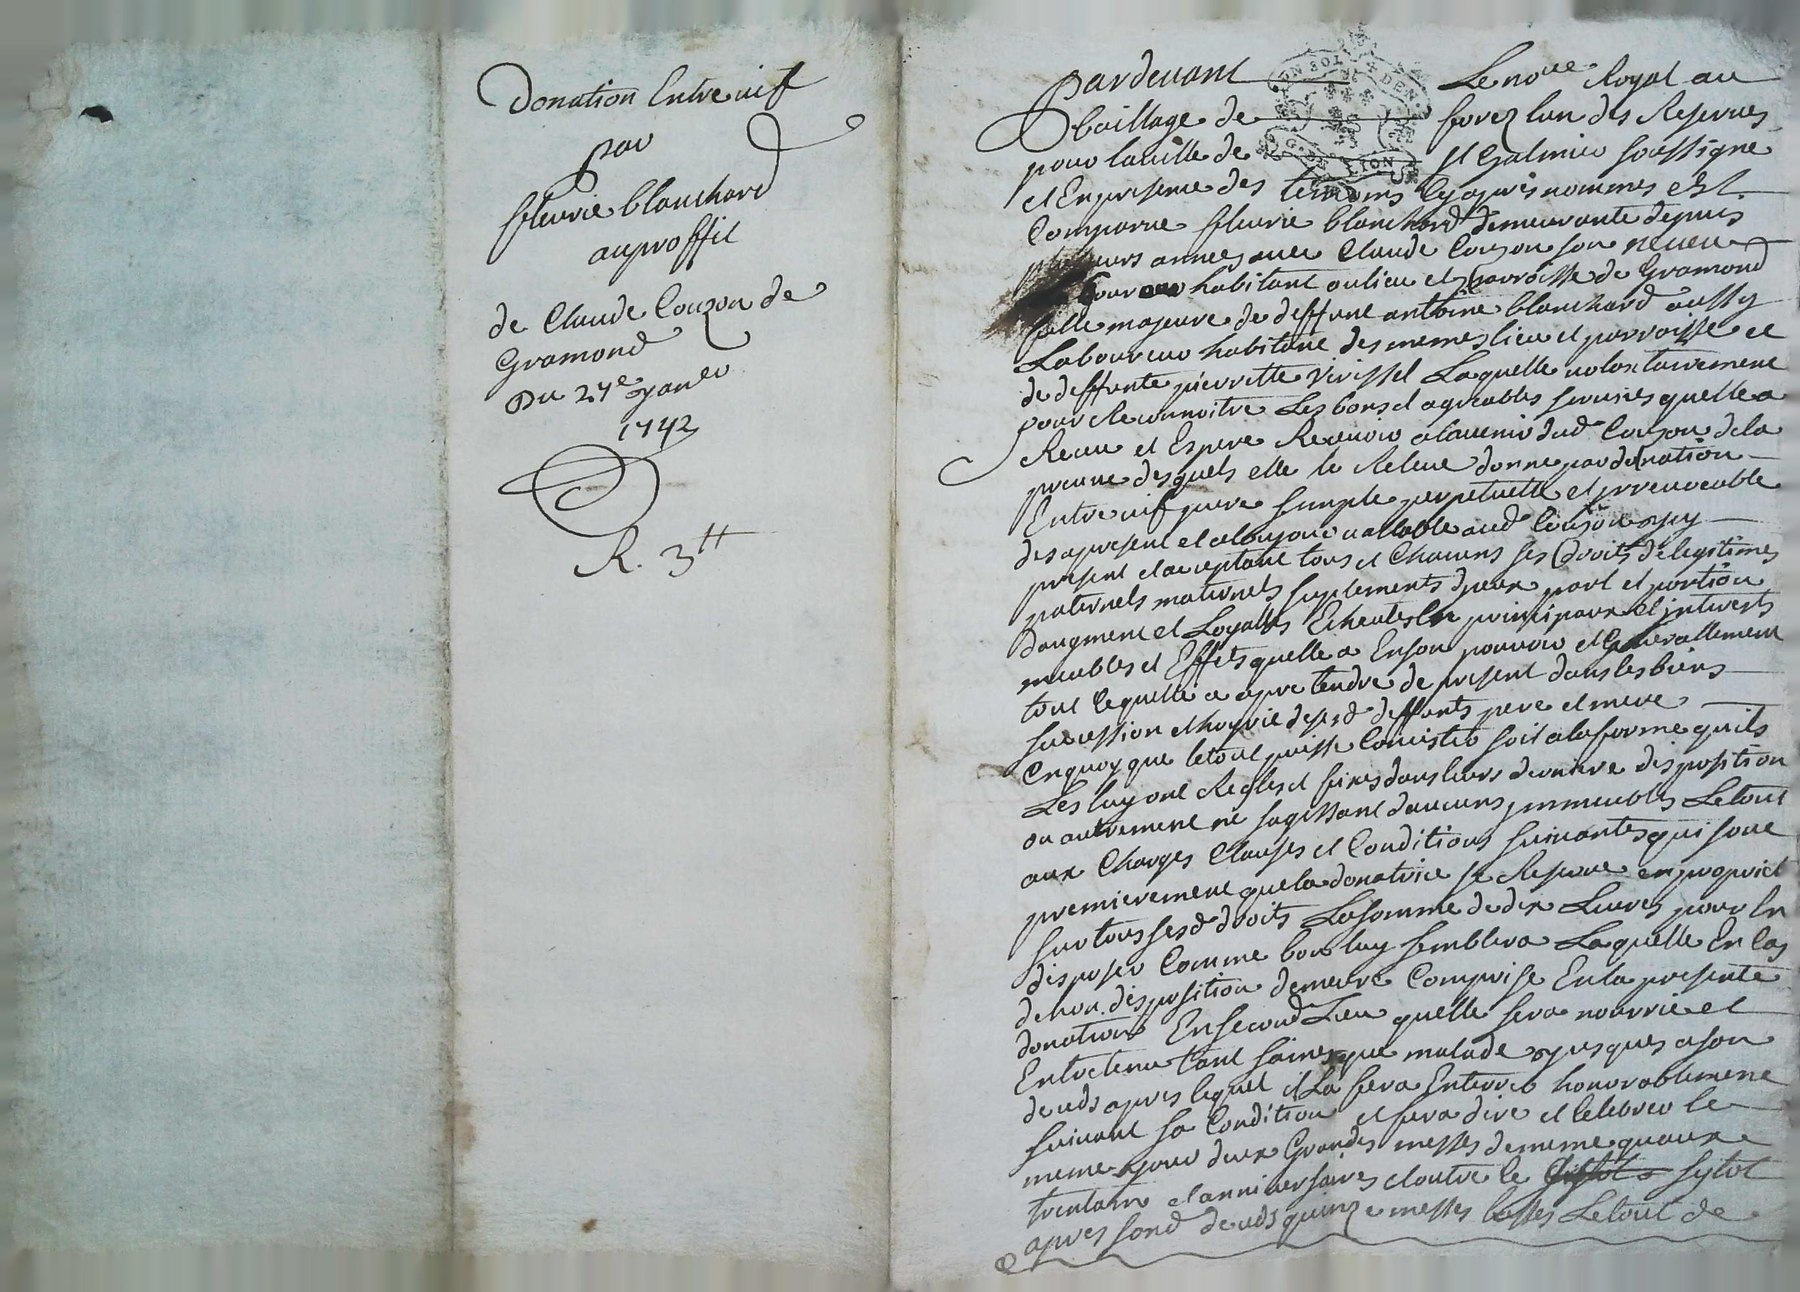 Donation Entre vif
par
fleurie blanchard
au proffit
de Claude Couzon de
Gramond
Du 27e janer
1742
R. 3tt
Pardevant Le nore Royal au
bailliage de forez lun des Reservés
pour la ville de st Galmier soussigné
et En presence des temoins cy apres nommes est
Comparue fleurie blanchard demeurante depuis
plusieurs années avec Claude Couzon son neveu
habitant au lieu et parroisse de Gramond
fille majeure de deffunt antoine blanchard aussy
Laboureur habitant des memes lieu et parroisse et
de deffunte pierrette Virissel Laquelle volontairement
pour Reconnoitre Les bons et agreables services quelle a
Receu et Espere Recevoir a lavenir dud Couzon de la
preuve desquels elle le Releve donne par donation
Entre vif pure simple perpetuelle et jrrevocable
des apresent et atoujour vallable aud Couzon jcy
present et acceptant tous et Chacuns ses droits de legitimes
paternels maternels suplements djceux part et portion
daugment et Loyalles Echeutes En principaux et jnterests
meubles et Effets quelle a En son pouvoir et Generallement
tout ce quelle a apretendre de present dans les biens
succession et hoyrie desesd deffunts pere et mere
En quoy que le tout puisse Concister soit a la forme quils
Les luy ont Regles et fixes dans leurs derniere disposition
ou autrement ne sagissant daucuns jmmeubles Le tout
aux Charges Clauses et Conditions suivantes qui sont
premierement que la donatrice se Reserve en propriet
sur tous sesd droits La somme de dix Livres pour En
disposer Comme bon luy semblera Laquelle En Cas
de non disposition demeure Comprise En la presente
donation En second Lieu quelle sera nourrie et
Entretenue tant saine que malade jusques a son
deceds apres lequel il La fera Enterrer honorablement
suivant sa Condition et fera dire et Celebrer le
meme jour deux Grandes messes de meme quaux
trentain et anniversaires et outre le sytot
apres sond deceds quinze messes basses Le tout de